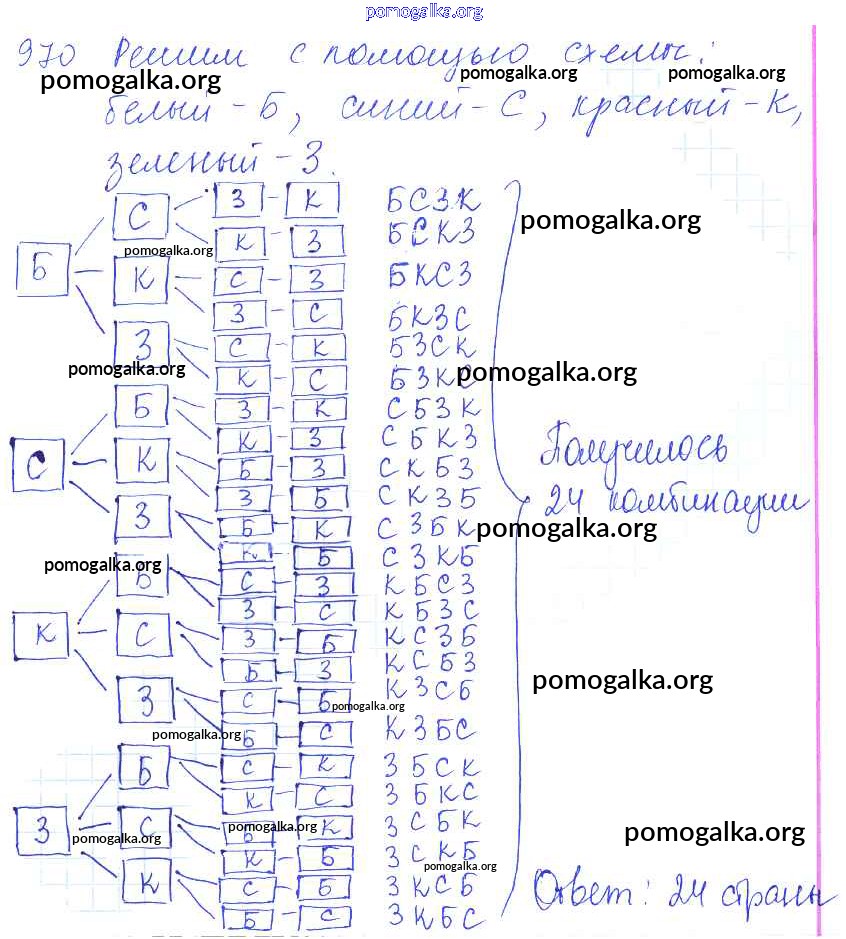 pomogalka.org
970 Решим с помощью схемы:
pomogalka.org pomogalka.org pomogalka.org
белый - Б, синий - С, красный - К,
зеленый - З.
З - К БСЗК
С
К - З БСКЗ
pomogalka.org
pomogalka.org
Б К С - З БКСЗ
З - С БКЗС
З С - К БЗСК
pomogalka.org К - С БЗКС pomogalka.org
Б З - К СБЗК
К - З СБКЗ
Получилось
С К Б - З СКБЗ
З - Б СКЗБ
24 комбинации
З Б - К СЗБК pomogalka.org
К - Б СЗКБ
pomogalka.org
Б С - З КБСЗ
З - С КБЗС
К С З - Б КСЗБ
Б - З КСБЗ
pomogalka.org
З С - Б КЗСБ
pomogalka.org
Б - С КЗБС
pomogalka.org
Б С - К ЗБСК
К - С ЗБКС
З С Б - К ЗСБК
pomogalka.org pomogalka.org pomogalka.org
К - Б ЗСКБ
pomogalka.org
К С - Б ЗКСБ
Ответ: 24 страны
Б - С ЗКБС